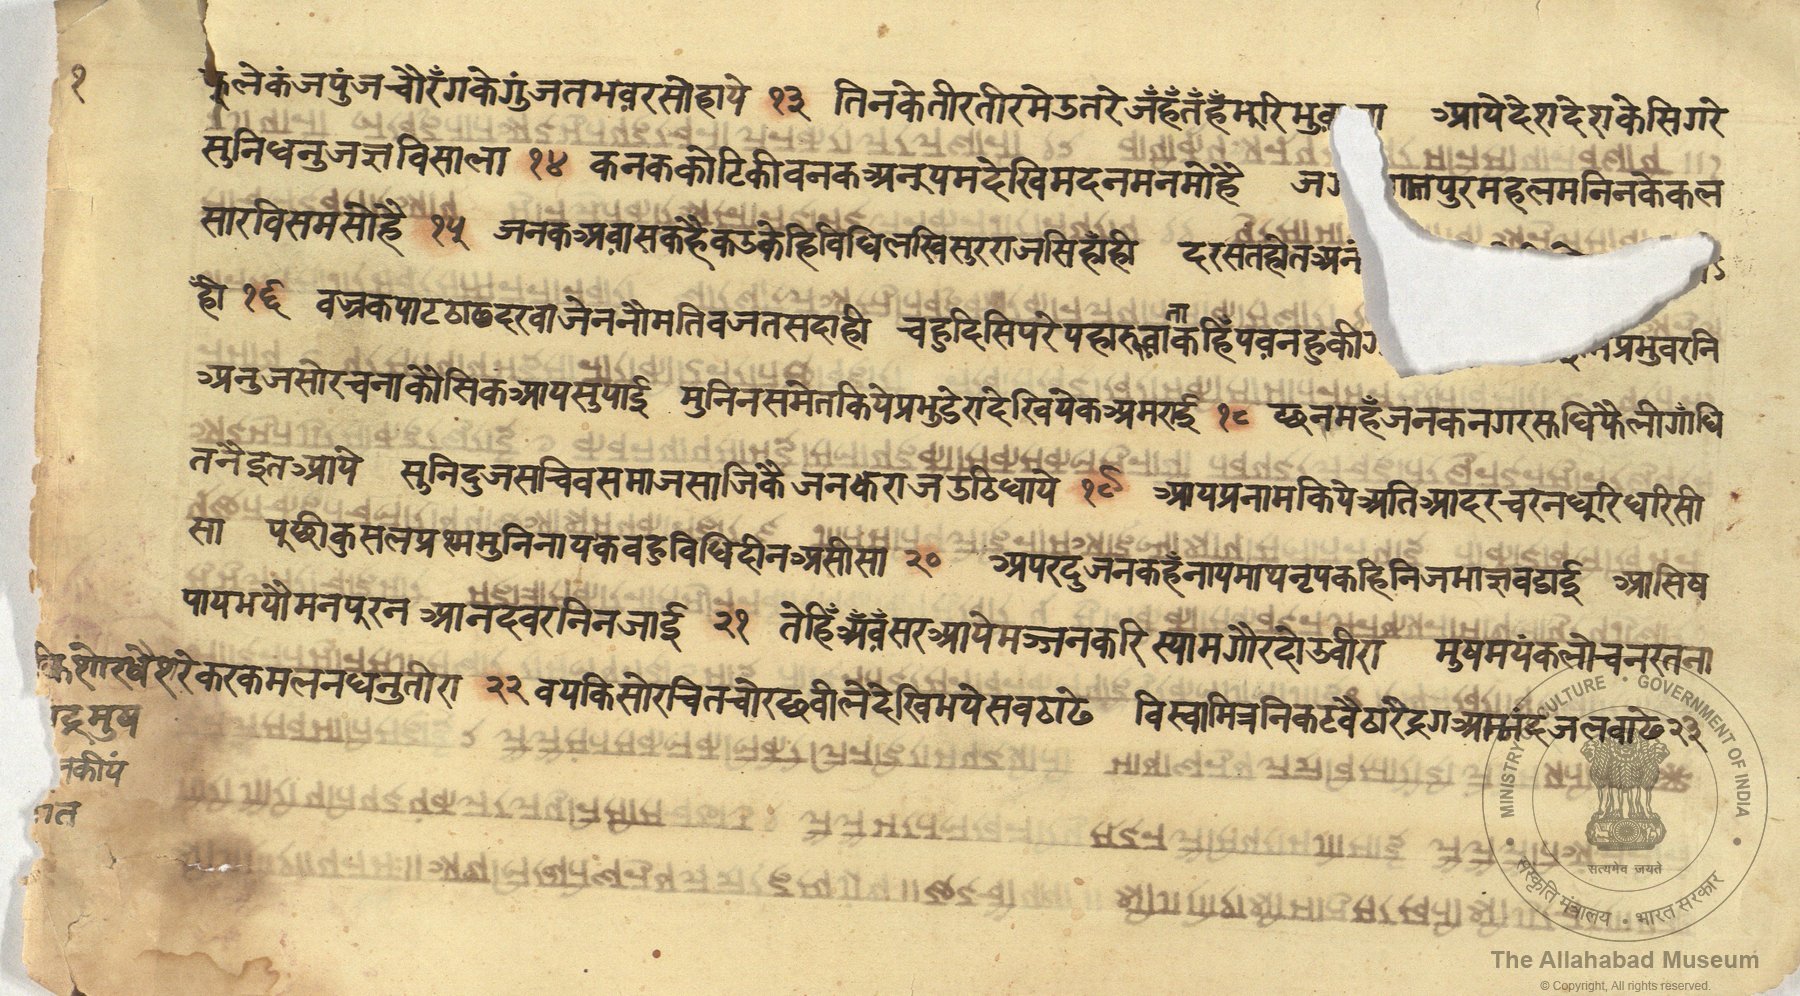 १
फूलेकंजपुंजचौरँगकेगुंजतभवरसोहाये १३ तिनकेतीरतीरमेउतरेजँहँतँहँभूरिभुव आयेदेशदेशकेसिगरे
सुनिधनुजज्ञविसाला १४ कनककोटिकीवनकअनूपमदेखिमदनमनमोहै पुरमहलमनिनकेकल
सारविसमसोहै १५ जनकअवासकहैकउकेहिविधिलखिसुरराजसिहाँही दरसतहोतअनं
हौ १६ वज्रकपाटठाढदरवाजेननौमतिवजतसदाही चहुदिसिपरेपहारुवाताकहिँपवनहुकी प्रभुवरनि
अनुजसोरचनाकौसिकआयसुपाई मुनिनसमेतकियेप्रभुडेरादेखियेकअमराई १८ छनमहँजनकनगरसुधिफैलीगाँधि
तनैइतआये सुनिदुजसचिवसमाजसाजिकैजनकराजउठिधाये १९ आयप्रनामकियेअतिआदरचरनधूरिधरिसी
सा पूछीकुसलप्रश्नमुनिनायकवहुविधिदीनअसीसा २० अपरदुजनकहँनायमाथनृपकहिनिजभाज्ञवडाई आसिष
पायभयौमनपूरनआनदवरनिनजाई २१ तेहिँअँवँसरआयेमज्जनकरिस्यामगौरदोउवीरा मुषमयंकलोचनरतना
रेकरकमलनधनुतीरा २२ वयकिसोरचितचोरछवीलेदेखिभयेसवठाढे विस्वामित्रनिकटवैठारेद्रगआनंदजलवाढे २३
मुष
कीपं
MINISTRY OF CULTURE • GOVERNMENT OF INDIA
सत्यमेव जयते
संस्कृति मंत्रालय • भारत सरकार
The Allahabad Museum
© Copyright, All rights reserved.